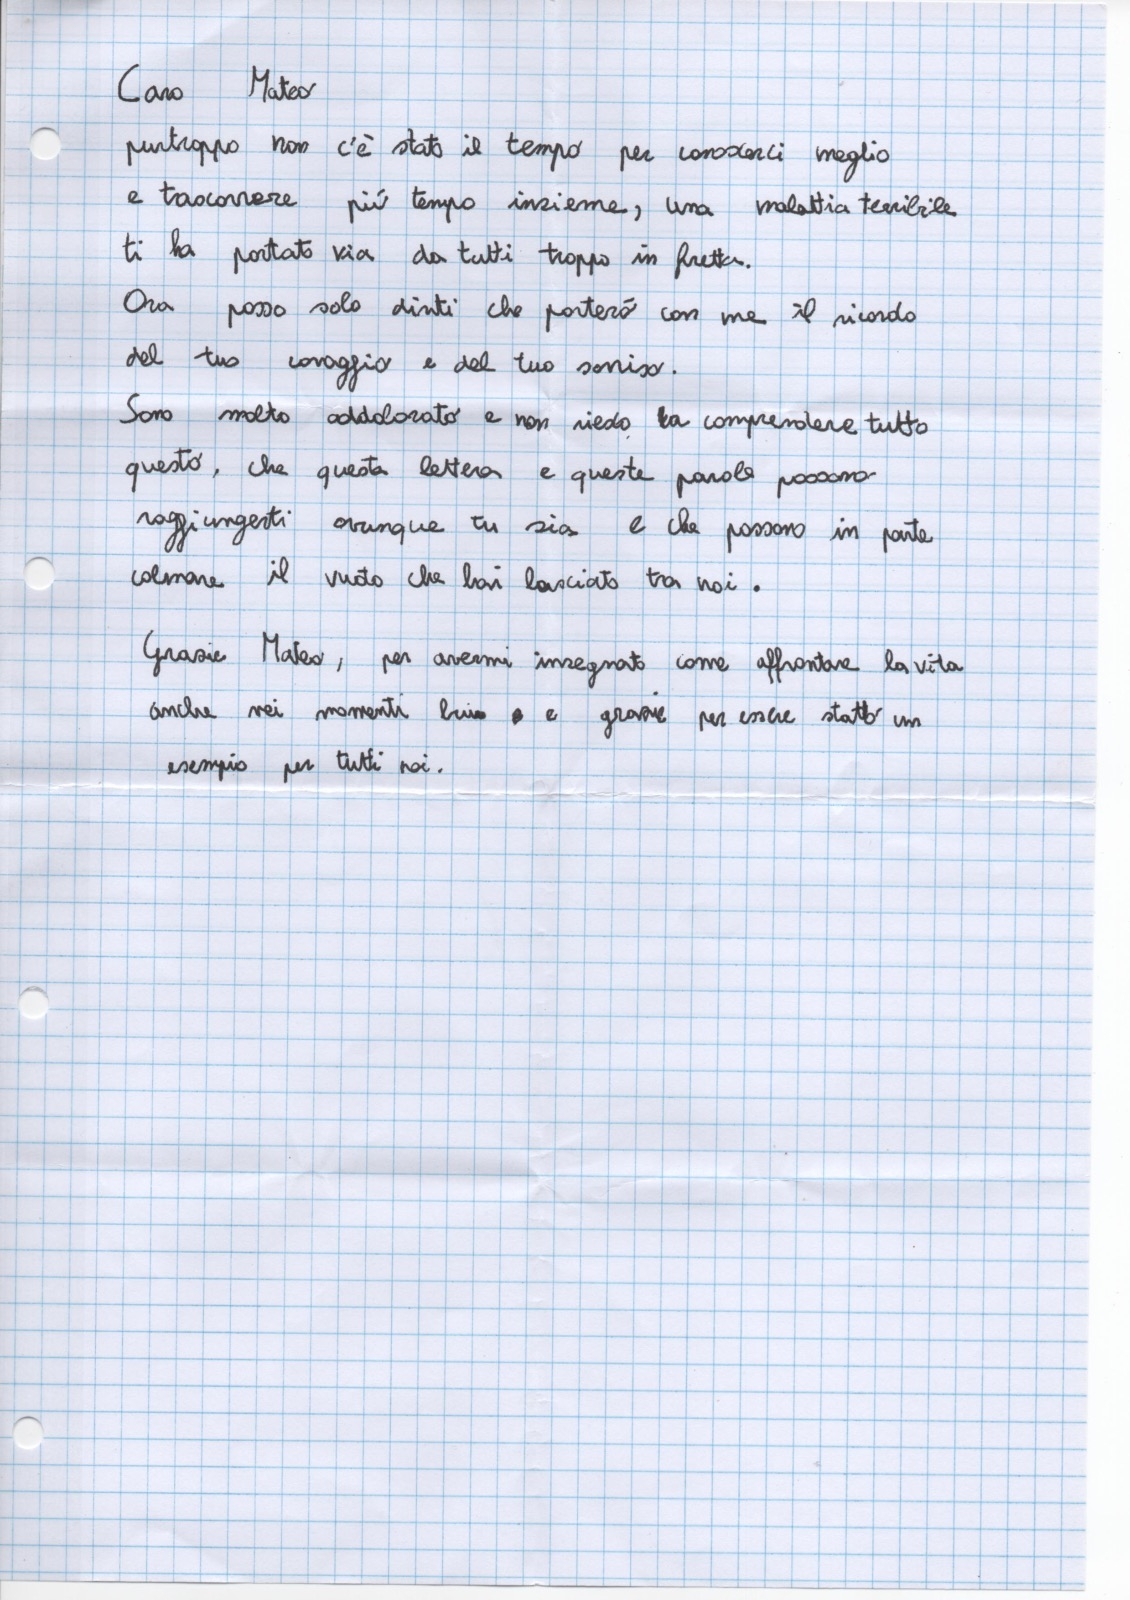 Caro Mateo
purtroppo non c'è stato il tempo per conoscerci meglio
e trascorrere più tempo insieme, una malattia terribile
ti ha portato via da tutti troppo in fretta.
Ora posso solo dirti che porterò con me il ricordo
del tuo coraggio e del tuo sorriso.
Sono molto addolorato e non riesco a comprendere tutto
questo, che questa lettera e queste parole possano
raggiungerti ovunque tu sia e che possano in parte
colmare il vuoto che hai lasciato tra noi.
Grazie Mateo, per avermi insegnato come affrontare la vita
anche nei momenti bui e grazie per essere stato un
esempio per tutti noi.